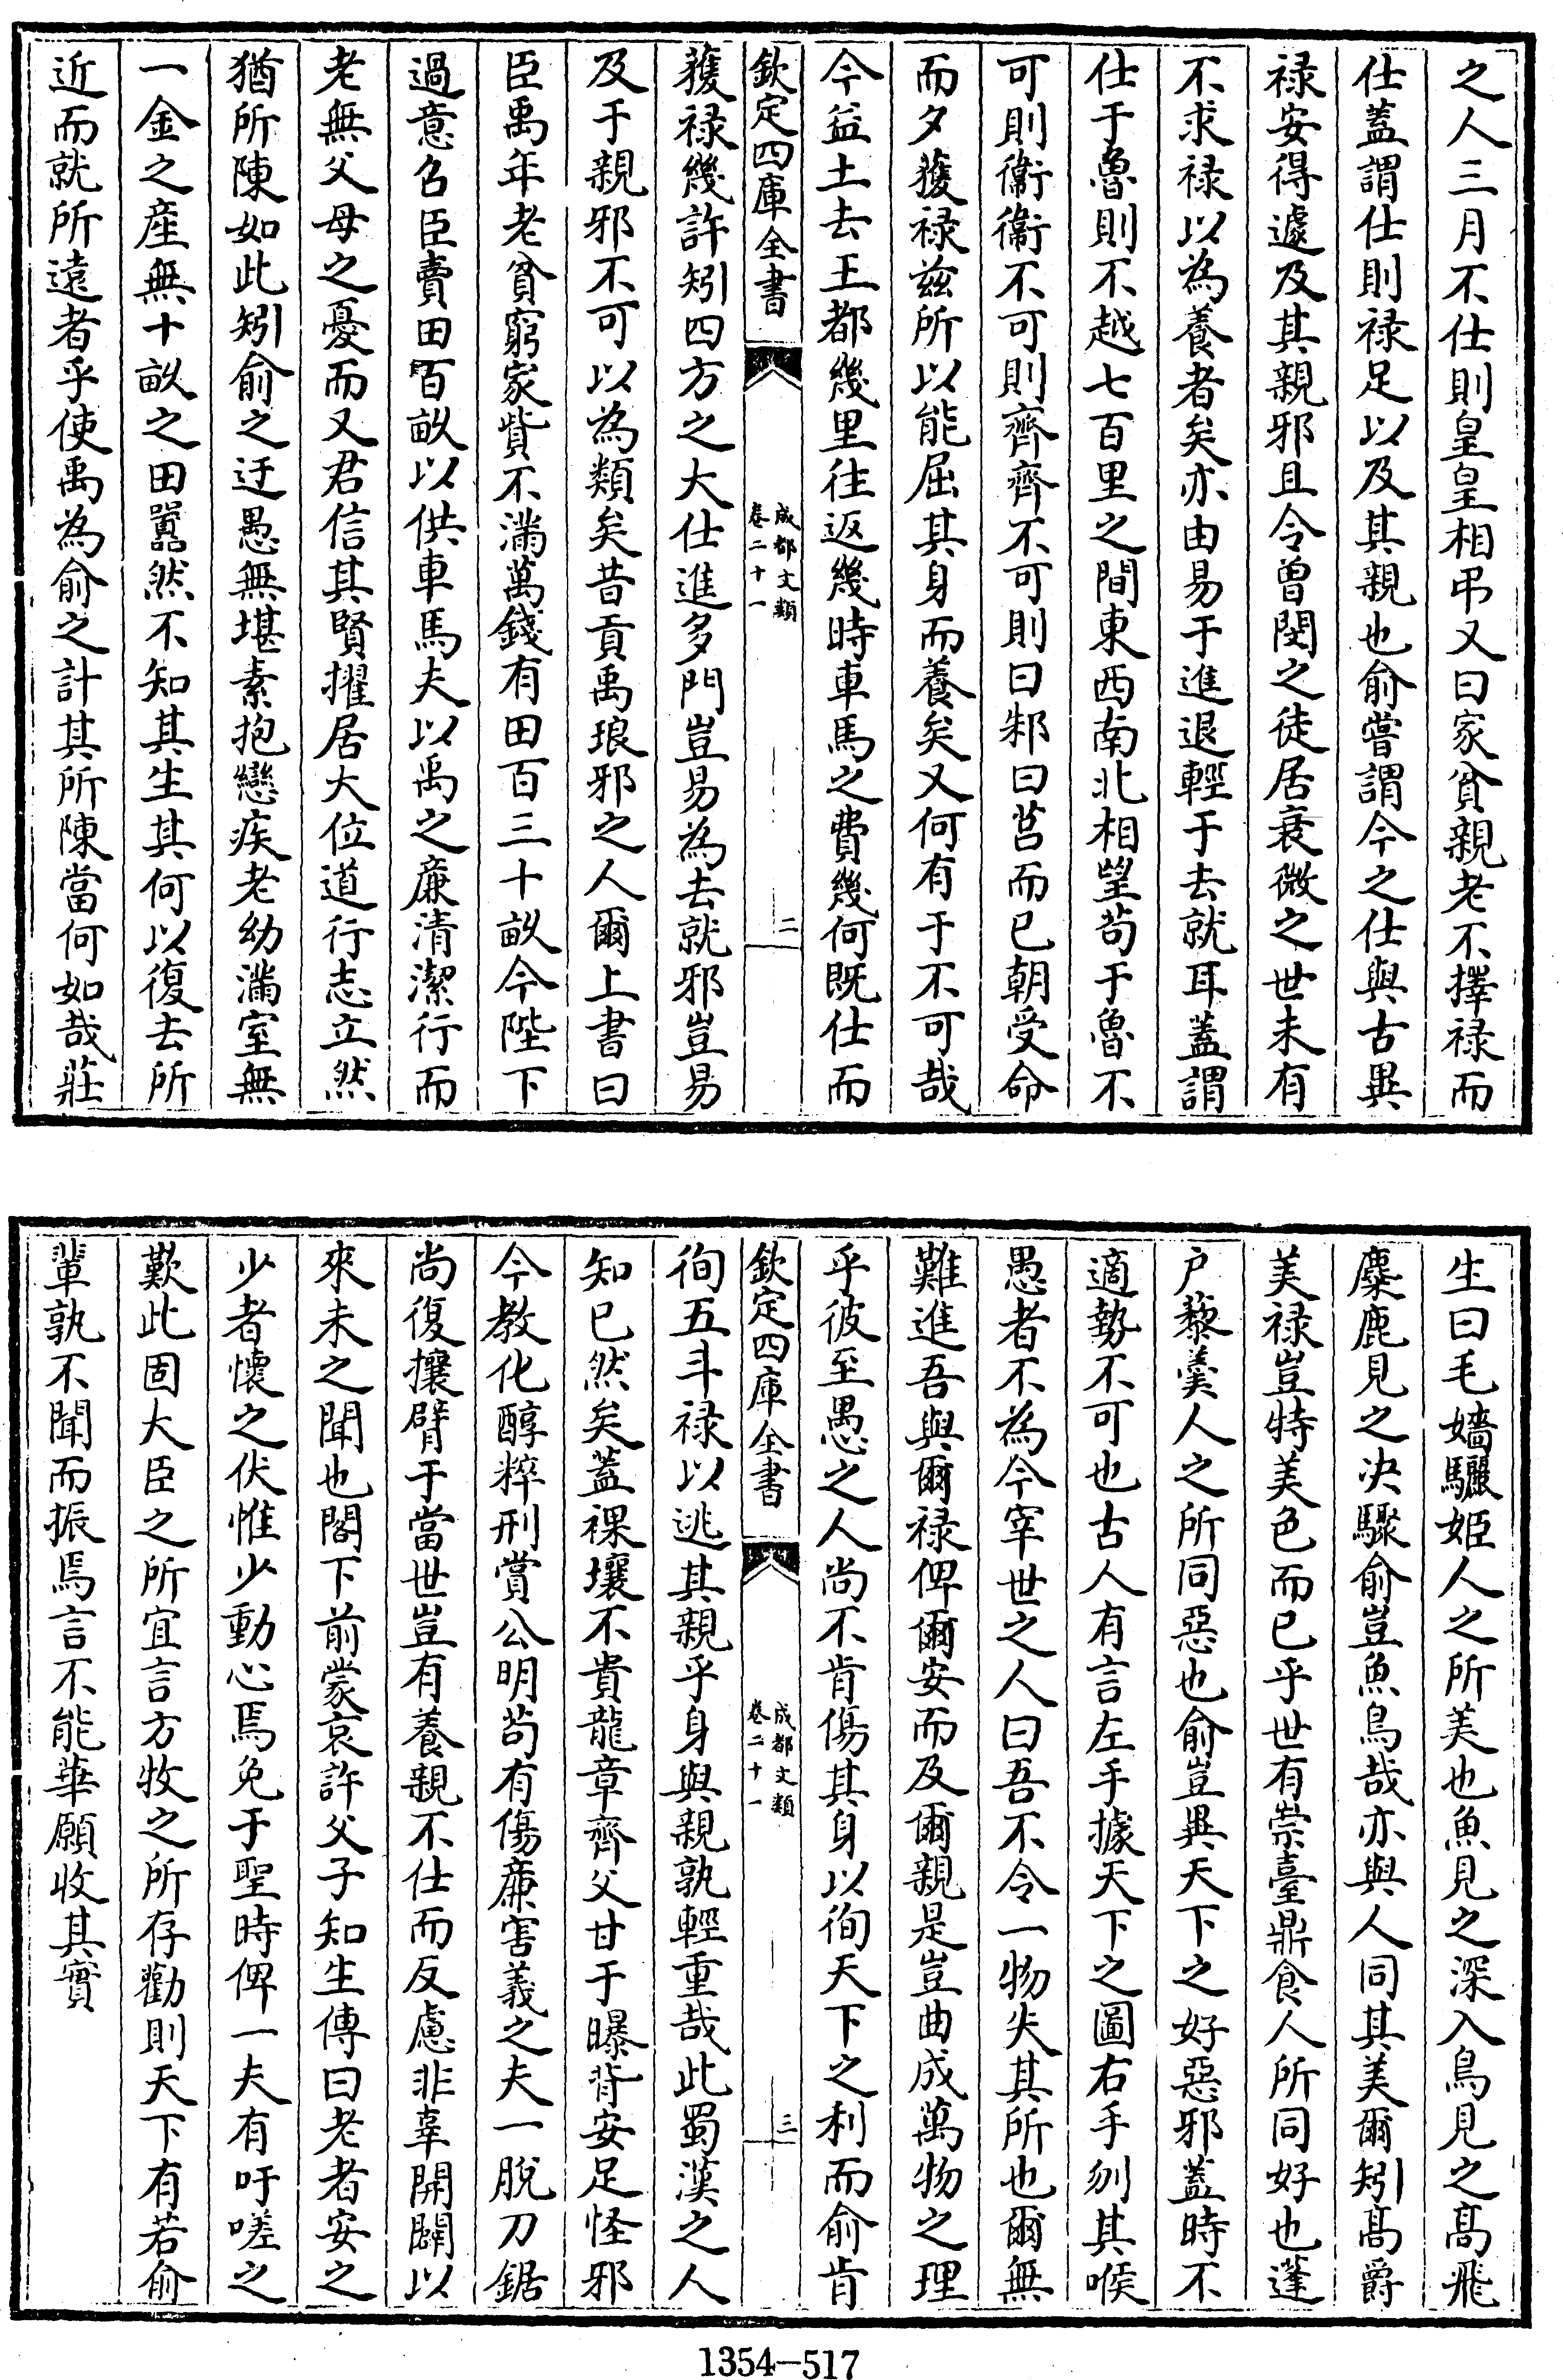 之人三月不仕則皇皇相弔又曰家貧親老不擇禄而
仕蓋謂仕則禄足以及其親也俞嘗謂今之仕與古異
禄安得遽及其親邪且令曾閔之徒居衰微之世未有
不求禄以為養者矣亦由易于進退輕于去就耳蓋謂
仕于魯則不越七百里之間東西南北相望苟于魯不
可則衛衛不可則齊齊不可則曰邾曰莒而已朝受命
而夕獲禄兹所以能屈其身而養矣又何有于不可哉
今益土去王都幾里往返幾時車馬之費幾何既仕而
欽定四庫全書
成都文類
卷二十一
二
獲禄幾許矧四方之大仕進多門豈易為去就邪豈易
及于親邪不可以為類矣昔貢禹琅邪之人爾上書曰
臣禹年老貧窮家貲不滿萬錢有田百三十畝今陛下
過意召臣賣田百畝以供車馬夫以禹之廉清潔行而
老無父母之憂而又君信其賢擢居大位道行志立然
猶所陳如此矧俞之迂愚無堪素抱戀疾老幼滿室無
一金之産無十畝之田嚚然不知其生其何以復去所
近而就所遠者乎使禹為俞之計其所陳當何如哉莊
生曰毛嬙驪姬人之所美也魚見之深入鳥見之高飛
麋鹿見之决驟俞豈魚鳥哉亦與人同其美爾矧髙爵
美禄豈特美色而已乎世有崇臺鼎食人所同好也蓬
户藜羮人之所同惡也俞豈異天下之好惡邪蓋時不
適勢不可也古人有言左手據天下之圖右手刎其喉
愚者不為今宰世之人曰吾不令一物失其所也爾無
難進吾與爾禄俾爾安而及爾親是豈曲成萬物之理
乎彼至愚之人尚不肯傷其身以徇天下之利而俞肯
欽定四庫全書
成都文類
卷二十一
三
徇五斗禄以逃其親乎身與親孰輕重哉此蜀漢之人
知已然矣蓋裸壤不貴龍章齊父甘于曝背安足怪邪
今教化醇粹刑賞公明苟有傷廉害義之夫一脱刀鋸
尚復攘臂于當世豈有養親不仕而反慮非辜開闢以
來未之聞也閣下前蒙哀許父子知生傳曰老者安之
少者懷之伏惟少動心焉免于聖時俾一夫有吁嗟之
歎此固大臣之所宜言方牧之所存勸則天下有若俞
輩孰不聞而振焉言不能華願收其實
1354-517